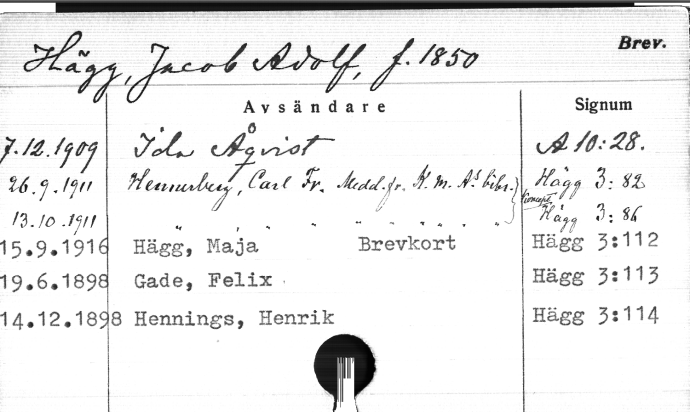 Hägg, Jacob Adolf, f. 1850 Brev.
Avsändare Signum
7.12.1909 Ida Åqvist A 10:28.
26.9.1911 Hennerberg, Carl Fr. Medd. fr. K. M. A:s bibl. Hägg 3:82
Koncept
13.10.1911 " " " " " " " " Hägg 3:86
15.9.1916 Hägg, Maja Brevkort Hägg 3:112
19.6.1898 Gade, Felix Hägg 3:113
14.12.1898 Hennings, Henrik Hägg 3:114